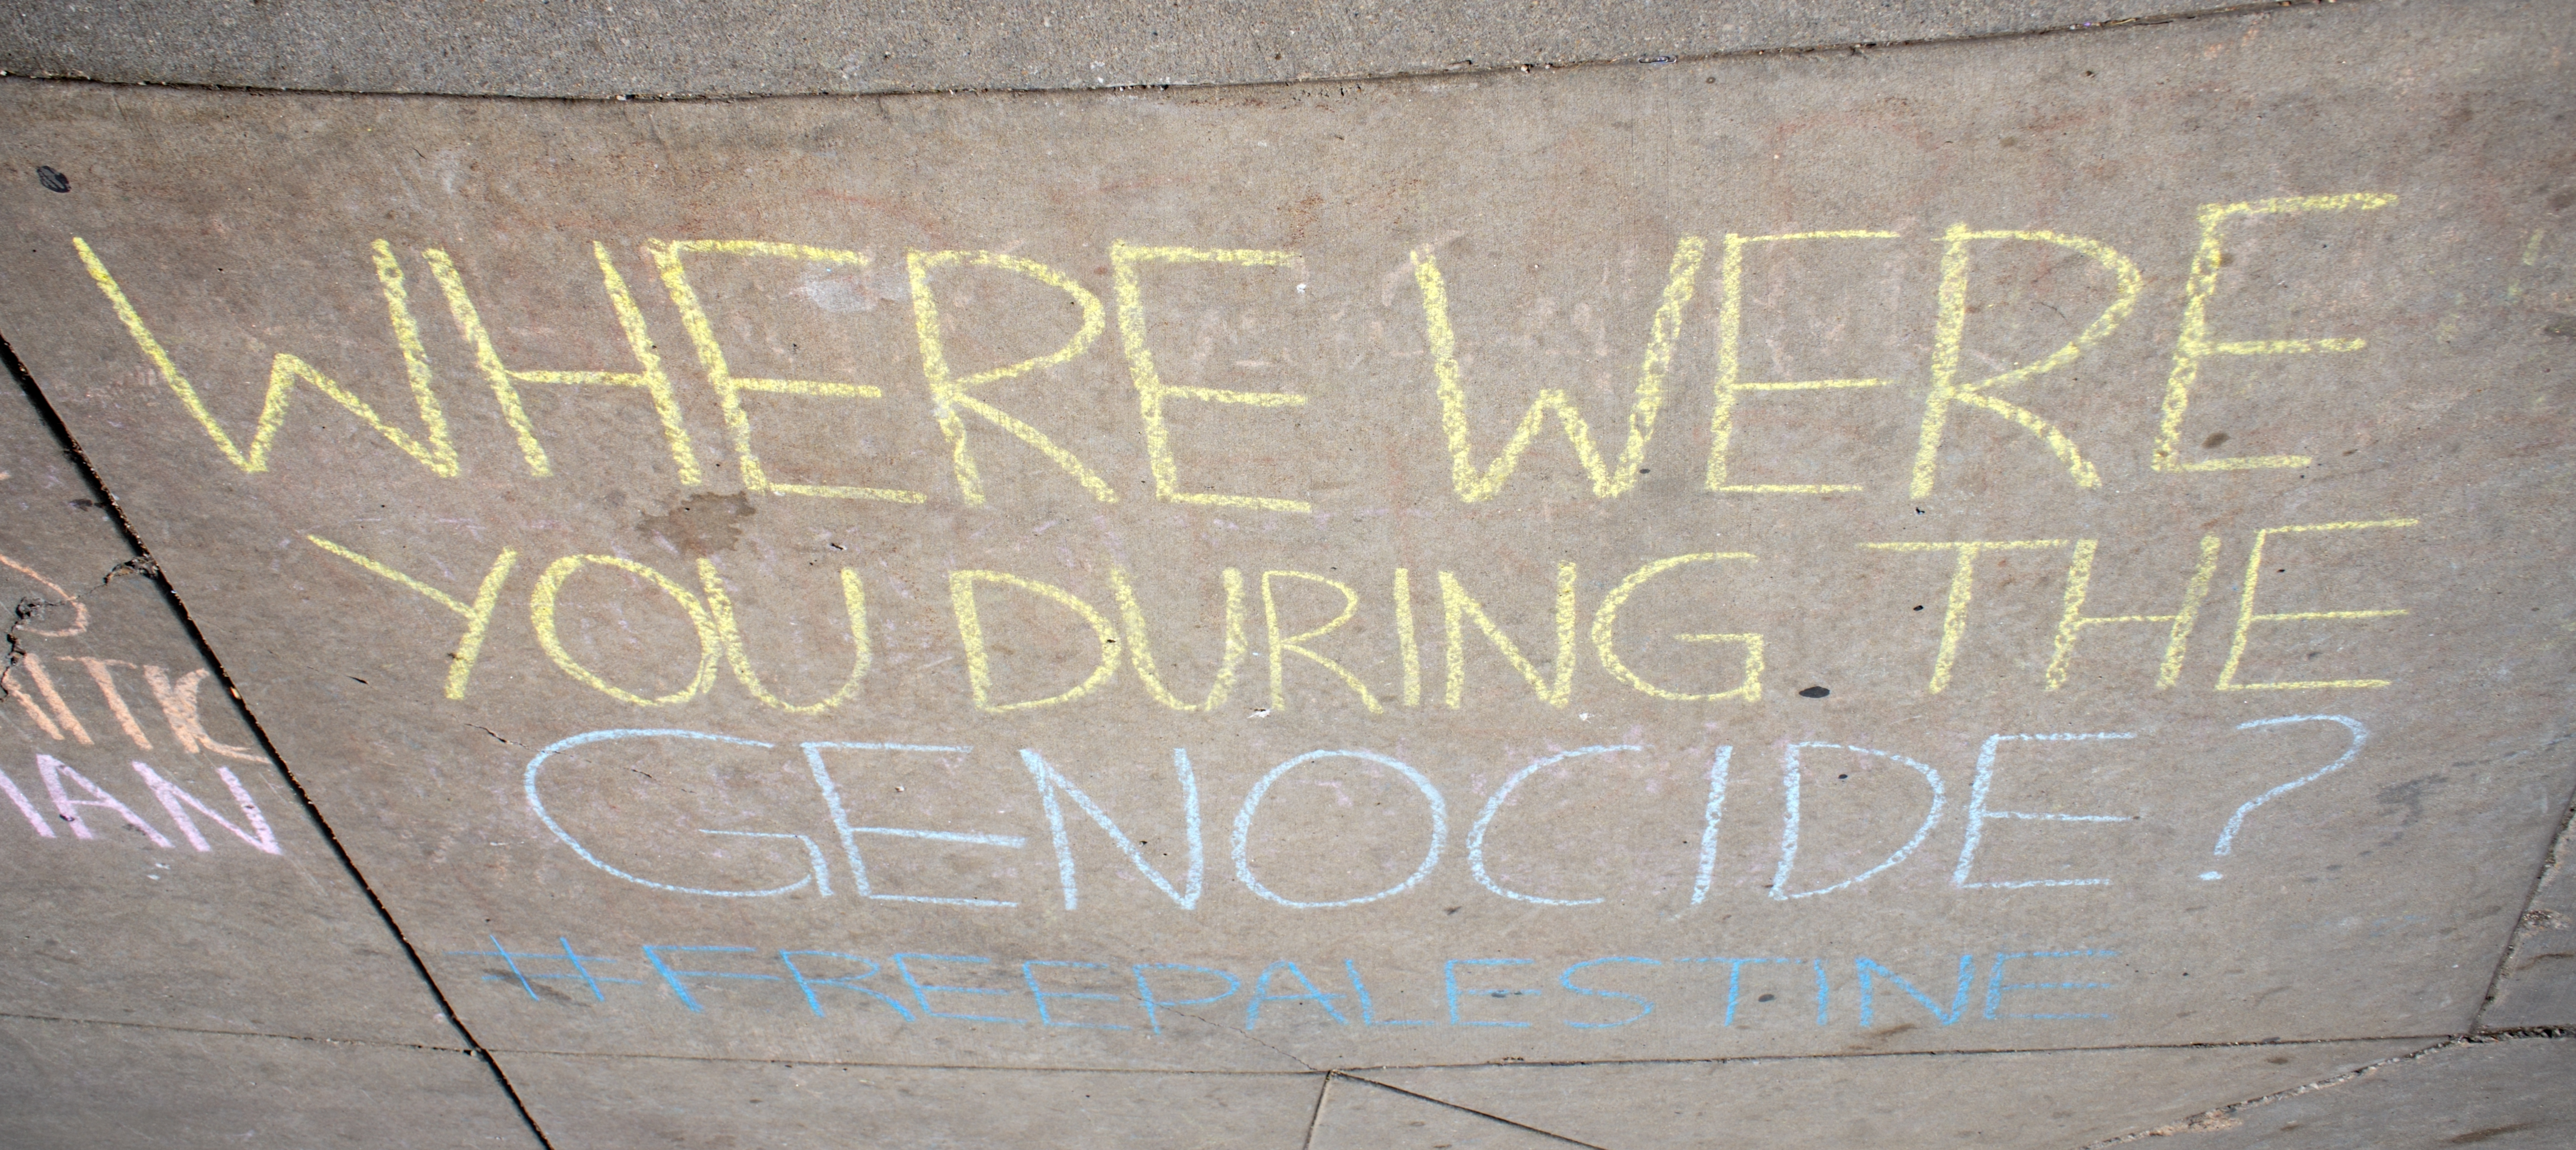 WHERE WERE
YOU DURING THE
GENOCIDE?
#FREEPALESTINE